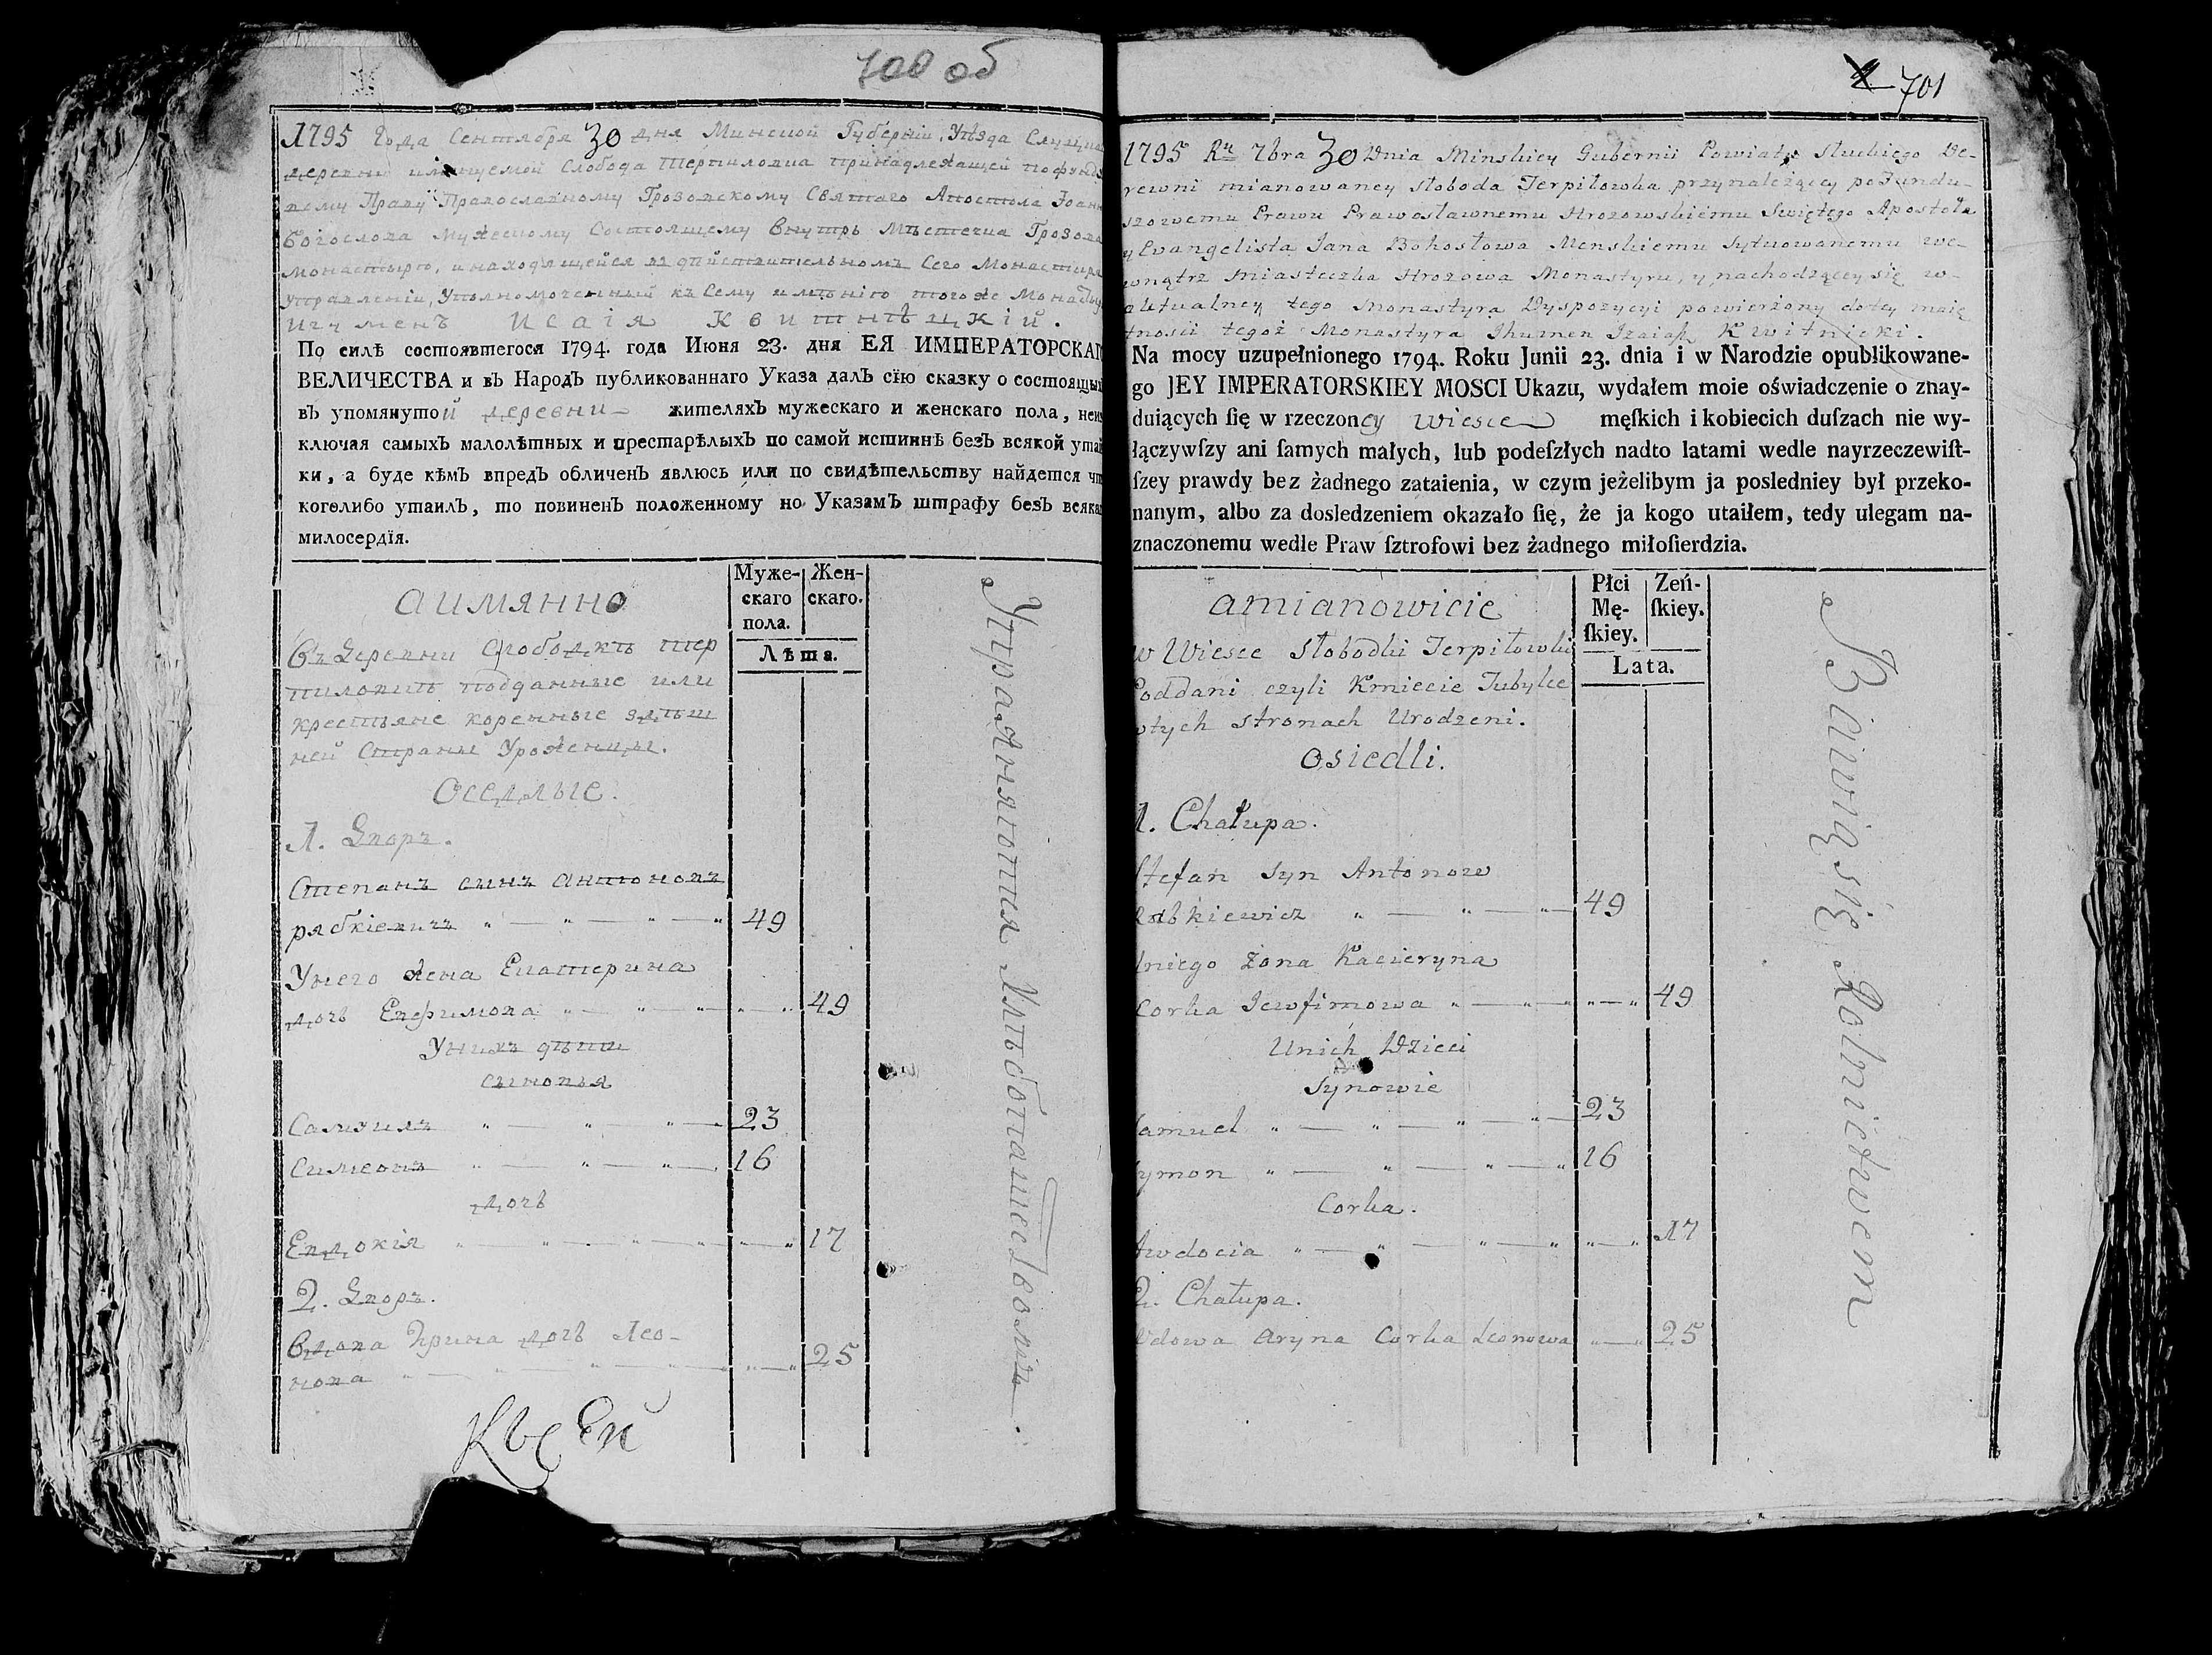 700 об
1795 Года Сентября 30 дня Минской Губернии, Уѣзда Слуцка
деревни имянуемой Слобода Терпиловка принадлежащей пофунду
вому Праву Православному Грозовскому Святаго Апостола Іоан
Богослова мужескому Состоящему внутрь Мѣстечка Грозова
монастырю, инаходящейся вдѣйствительномъ Сего Монастыря
управленіи, Уполномоченный къ Сему имѣнію тогоже Монастыря
Игуменъ Исаія Квитнѣцкій.
По силѣ состоявшегося 1794. года Июня 23. дня ЕЯ ИМПЕРАТОРСКАГО
ВЕЛИЧЕСТВА и въ Народъ публикованнаго Указа далъ сїю сказку о состоящы
въ упомянутой деревни жителяхъ мужескаго и женскаго пола, неи
ключая самыхъ малолѣтных и престарѣлыхъ по самой истиннѣ безъ всякой утай
ки, а буде кѣмъ впредъ обличенъ явлюсь или по свидѣтельству найдется чт
коголибо утаилъ, то повиненъ положенному но Указамъ штрафу безъ всяка
милосердїя.
аимянно
Мужескаго пола.
Женскаго.
Лѣта.
въ Деревни Слободкѣ Тер
пиловкѣ подданные или
крестьяне коренные здѣш
ней Страны Уроженцы.
Оседлые.
1. Дворъ.
Степанъ сынъ Антоновъ
рябкіевичъ 49
Унего жена Екатерина
дочь Евфимова 49
Унихъ дѣти
сыновья
Самуилъ 23
Симеонъ 16
дочь
Евдокія 17
2. Дворъ.
Вдова Ирина дочь Лео-
нова 25
Упражняются Хлѣбопашествомъ.
701
1795 Ru 7bra 30 Dnia Minskiey Gubernii Powiatu Słuckiego De-
rewni mianowaney Słoboda Terpiłowka przynależącey po Fundu-
szowemu Prawu Prawosławnemu Hrozowskiému Swiętego Apostoła
y Ewangelista Jana Bohosłowa Menskiemu Sytuowanemu we-
wnątrz Miasteczka Hrozowa Monastyru, y nachodzącey się w-
aktualney tego Monastyra Dyspozycyi powierżony dotey maię
tnosci tegoż Monastyra Jhumen Izaiasz Kwitnicki.
Na mocy uzupełnionego 1794. Roku Junii 23. dnia i w Narodzie opublikowane-
go JEY IMPERATORSKIEY MOSCI Ukazu, wydałem moie oświadczenie o znay-
duiących ſię w rzeczoney wiesce męſkich i kobiecich duſzach nie wy-
łączywſzy ani ſamych małych, lub podeſzłych nadto latami wedle nayrzeczewiſt-
ſzey prawdy bez żadnego zataienia, w czym jeżelibym ja posledniey był przeko-
nanym, albo za dosledzeniem okazało ſię, że ja kogo utaiłem, tedy ulegam na-
znaczonemu wedle Praw ſztrofowi bez żadnego miłoſierdzia.
amianowicie
Płci Mę-ſkiey.
Zeń-ſkiey.
Lata.
w Wiesce Słobodki Terpiłowki
Poddani czyli Kmiecie Tubylce
wtych stronach Urodzeni.
Osiedli.
1. Chałupa.
Stefan Syn Antonow
Rabkiewicz 49
Uniego Żona Kacieryna
Corka Jewfimowa 49
Unich Dzieci
Synowie
Samuel 23
Symon 16
Corka.
Awdocia 17
2. Chałupa.
Wdowa Aryna Corka Leonowa 25
Bawią się Rolnictwem